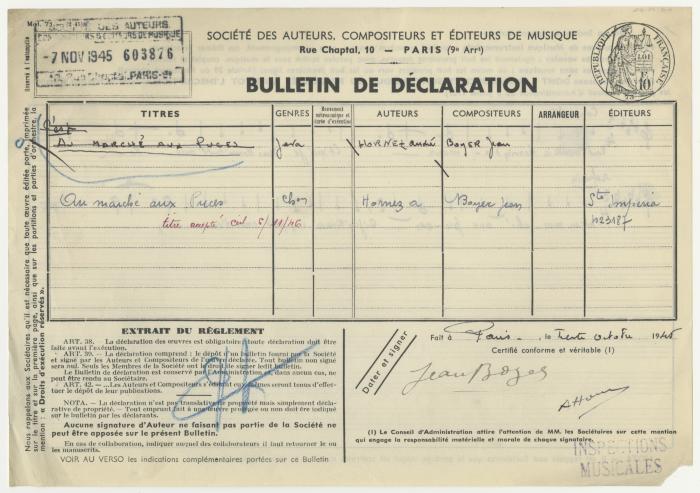 SOCIÉTÉ DES AUTEURS, COMPOSITEURS ET ÉDITEURS DE MUSIQUE
Rue Chaptal, 10 — PARIS (9e Arrt)
DES AUTEURS
-7 NOV 1945 603876
10, Rue Chaptal.PARIS-9e
RÉPUBLIQUE FRANÇAISE
LOI
10
BULLETIN DE DÉCLARATION
TITRES GENRES AUTEURS COMPOSITEURS ARRANGEUR ÉDITEURS
C'est
AU MARCHÉ AUX PUCES Java HORNEZ André BOYER Jean
Au marché aux Puces Chon Hornez a Boyer Jean Sté Impéria
titre accepté Cel 5/11/46 N23187
Nous rappelons aux Sociétaires qu'il est nécessaire que toute œuvre éditée porte, imprimée
sur le titre et sur la première page, ainsi que sur les partitions et parties d'orchestre, la
mention : « Droits d'exécution réservés ».
EXTRAIT DU RÈGLEMENT
ART. 38. — La déclaration des œuvres est obligatoire; toute déclaration doit être
faite avant l'exécution.
ART. 39. — La déclaration comprend : le dépôt d'un bulletin fourni par la Société
et signé par les Auteurs et Compositeurs de l'œuvre déclarée. Tout bulletin non signé
sera nul. Seuls les Membres de la Société ont le droit de signer ledit bulletin.
Le Bulletin de déclaration est conservé par l'Administration; en aucun cas, ne
peut être rendu au Sociétaire.
ART. 42. — Les Auteurs et Compositeurs seront tenus d'effec-
tuer le dépôt de leur publication.
NOTA. — La déclaration n'est pas translative de propriété mais simplement décla-
rative de propriété. — Tout emprunt fait à une œuvre protégée ou non doit être indiqué
sur le bulletin par les déclarants.
Aucune signature d'Auteur ne faisant pas partie de la Société ne
peut être apposée sur le présent Bulletin.
En cas de collaboration, indiquer auquel des collaborateurs il faut retourner le ou
les manuscrits.
VOIR AU VERSO les indications complémentaires portées sur ce Bulletin
Dater et signer
Fait à Paris, le trente Octobre 1945
Certifié conforme et véritable (1)
Jean Boyer
(1) Le Conseil d'Administration attire l'attention de MM. les Sociétaires sur cette mention
qui engage la responsabilité matérielle et morale de chaque signataire.
INSPECTIONS
MUSICALES